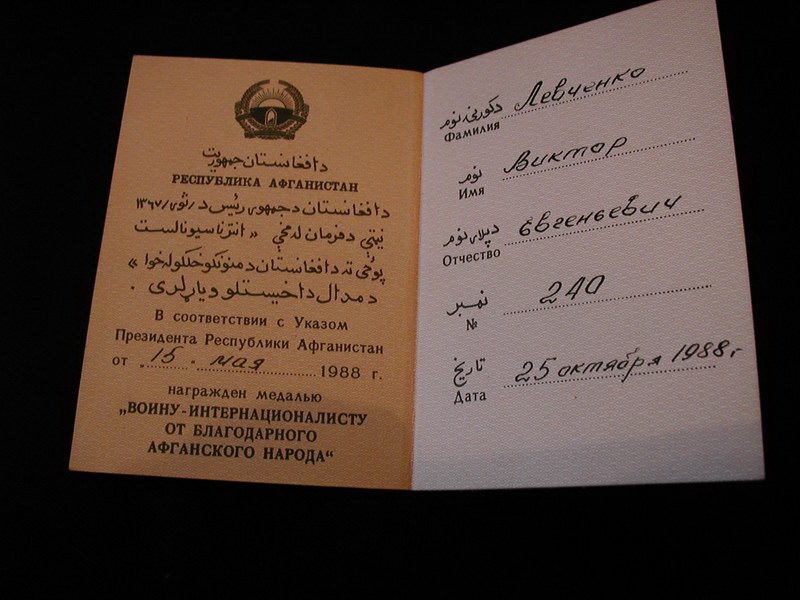 د افغانستان جمهوریت
РЕСПУБЛИКА АФГАНИСТАН
د افغانستان د جمهوری رئیس د ۱۳۶۷/
نیټې د فرمان له مخې « انترناسیونالست
پوځي ته د افغانستان د منونکو خلکو له خوا »
د مدال د اخیستلو ویاړ لری .
В соответствии с Указом
Президента Республики Афганистан
от „ 15. мая 1988 г.
награжден медалью
„ВОИНУ-ИНТЕРНАЦИОНАЛИСТУ
ОТ БЛАГОДАРНОГО
АФГАНСКОГО НАРОДА“
د کورنۍ نوم Левченко
Фамилия
نوم Виктор
Имя
د پلار نوم Евгеньевич
Отчество
نمبر 240
№
تاریخ 25 октября 1988 г.
Дата